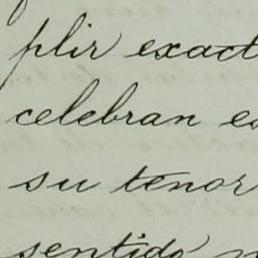 plir exact
celebran es
su tenor
sentido